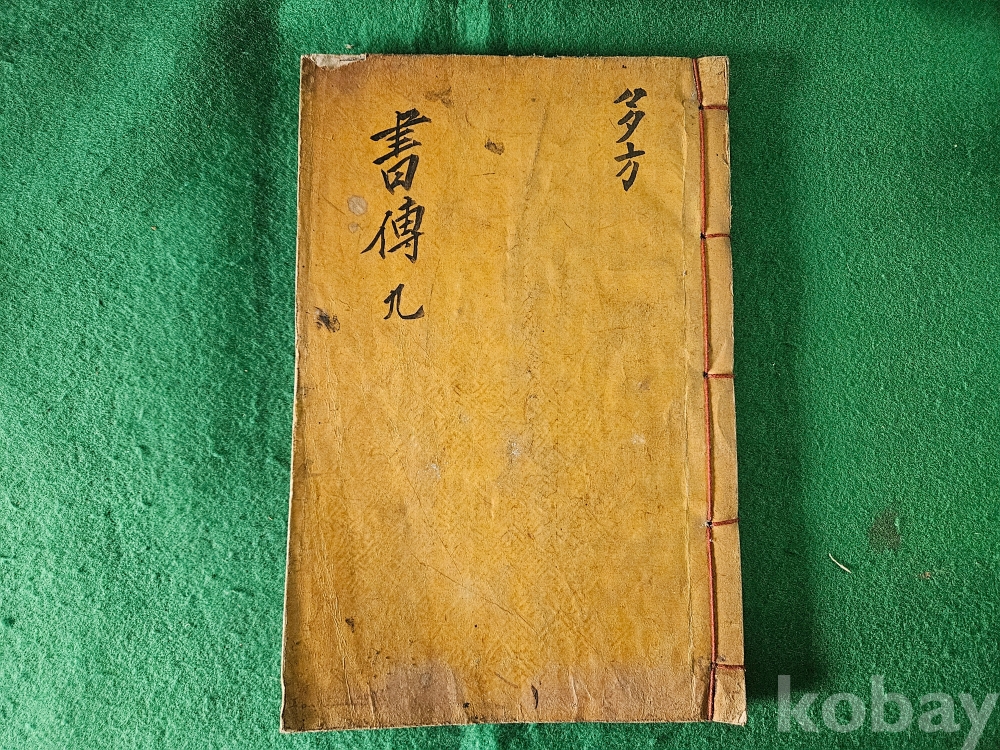 多方
書傳 九
kobay